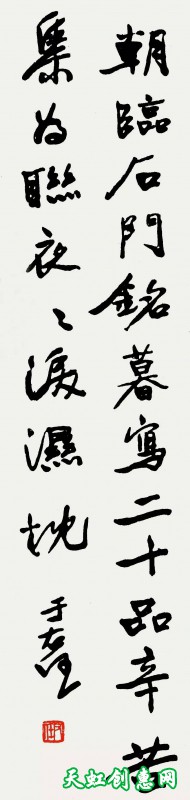 朝臨石門銘暮寫二十品辛苦
集為聯夜〻淚濕枕
于右任
天虹创意网